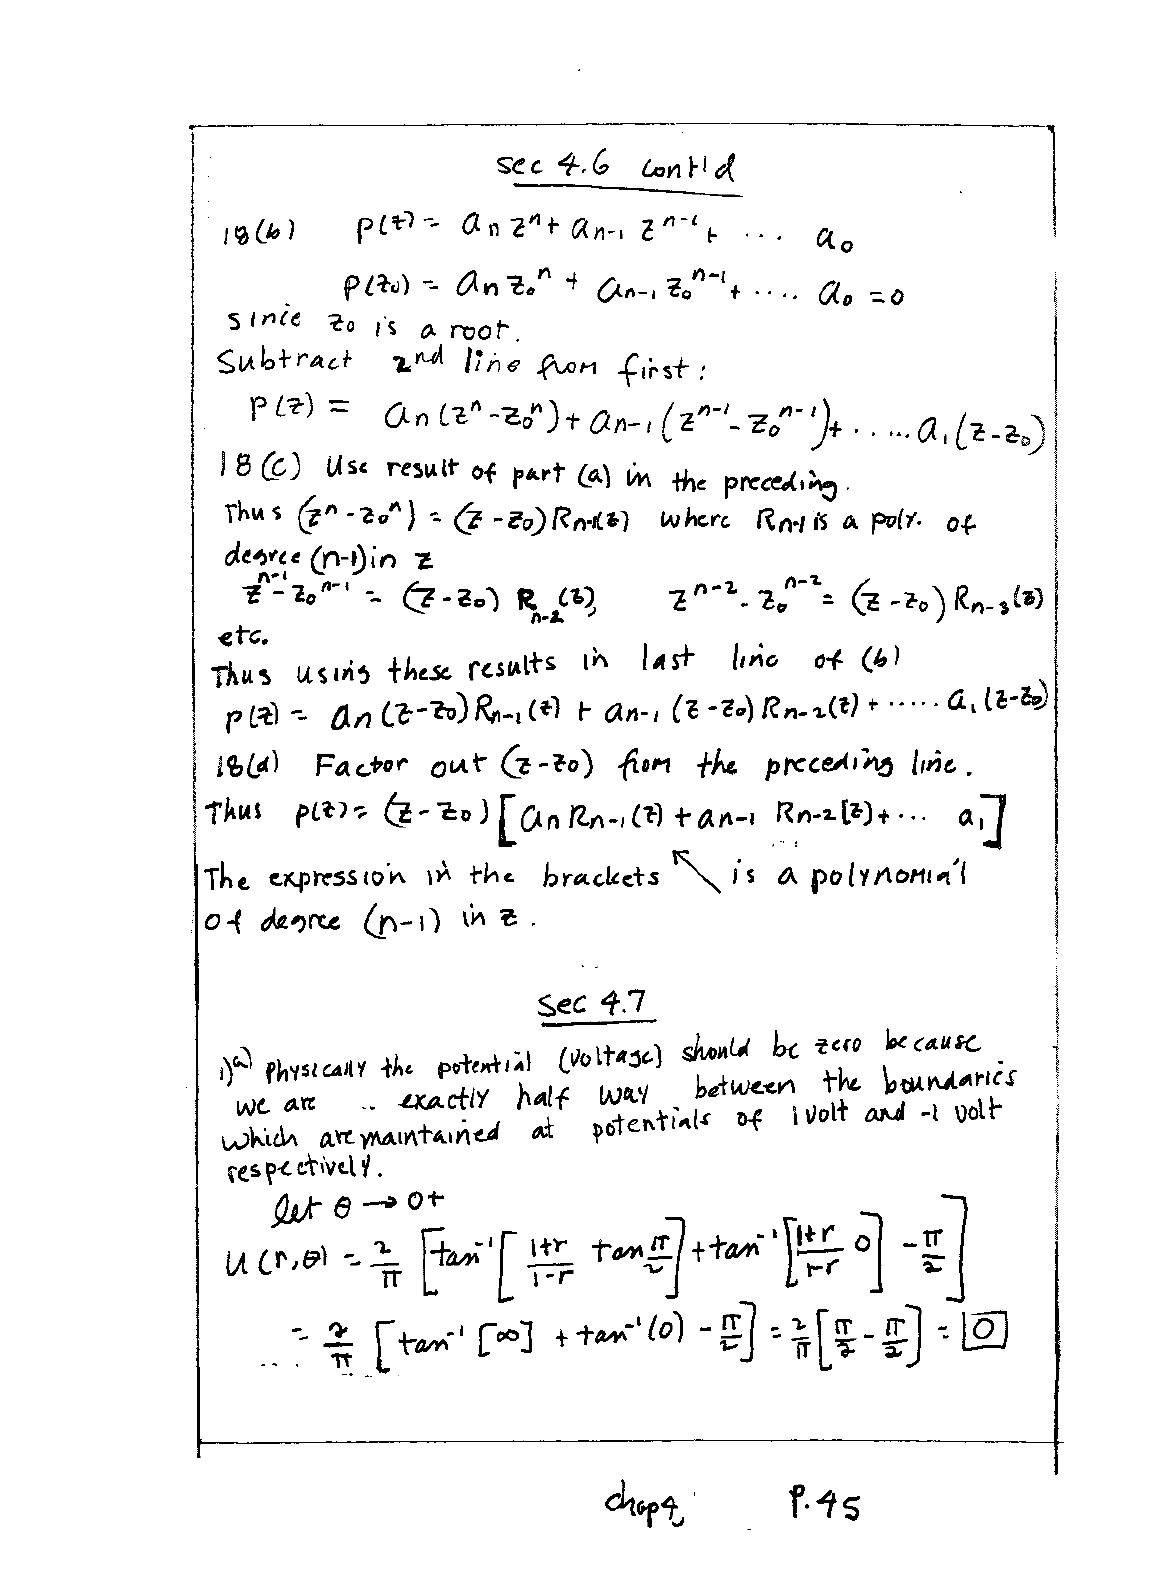 sec 4.6 cont'd
18(b) p(z) = aₙ zⁿ + aₙ₋₁ zⁿ⁻¹ + ... a₀
p(z₀) = aₙ z₀ⁿ + aₙ₋₁ z₀ⁿ⁻¹ + .... a₀ = 0
since z₀ is a root.
Subtract 2nd line from first:
p(z) = aₙ(zⁿ - z₀ⁿ) + aₙ₋₁(zⁿ⁻¹ - z₀ⁿ⁻¹) + ..... a₁(z - z₀)
18(c) Use result of part (a) in the preceding.
Thus (zⁿ - z₀ⁿ) = (z - z₀) Rₙ₋₁(z) where Rₙ₋₁ is a poly. of
degree (n-1) in z
zⁿ⁻¹ - z₀ⁿ⁻¹ = (z - z₀) Rₙ₋₂(z), zⁿ⁻² - z₀ⁿ⁻² = (z - z₀) Rₙ₋₃(z)
etc.
Thus using these results in last line of (b)
p(z) = aₙ(z - z₀) Rₙ₋₁(z) + aₙ₋₁ (z - z₀) Rₙ₋₂(z) + ..... a₁(z - z₀)
18(d) Factor out (z - z₀) from the preceding line.
Thus p(z) = (z - z₀) [aₙ Rₙ₋₁(z) + aₙ₋₁ Rₙ₋₂(z) + ... a₁]
The expression in the brackets ↖ is a polynomial
of degree (n-1) in z.
Sec 4.7
1)(a) Physically the potential (voltage) should be zero because
we are .. exactly half way between the boundaries
which are maintained at potentials of 1 volt and -1 volt
respectively.
let θ → 0+
U(r,θ) = 2/π [tan⁻¹[(1+r)/(1-r) tan π/2] + tan⁻¹[(1+r)/(1-r) 0] - π/2]
= 2/π [tan⁻¹[∞] + tan⁻¹(0) - π/2] = 2/π [π/2 - π/2] = 0
chap 4 p.45